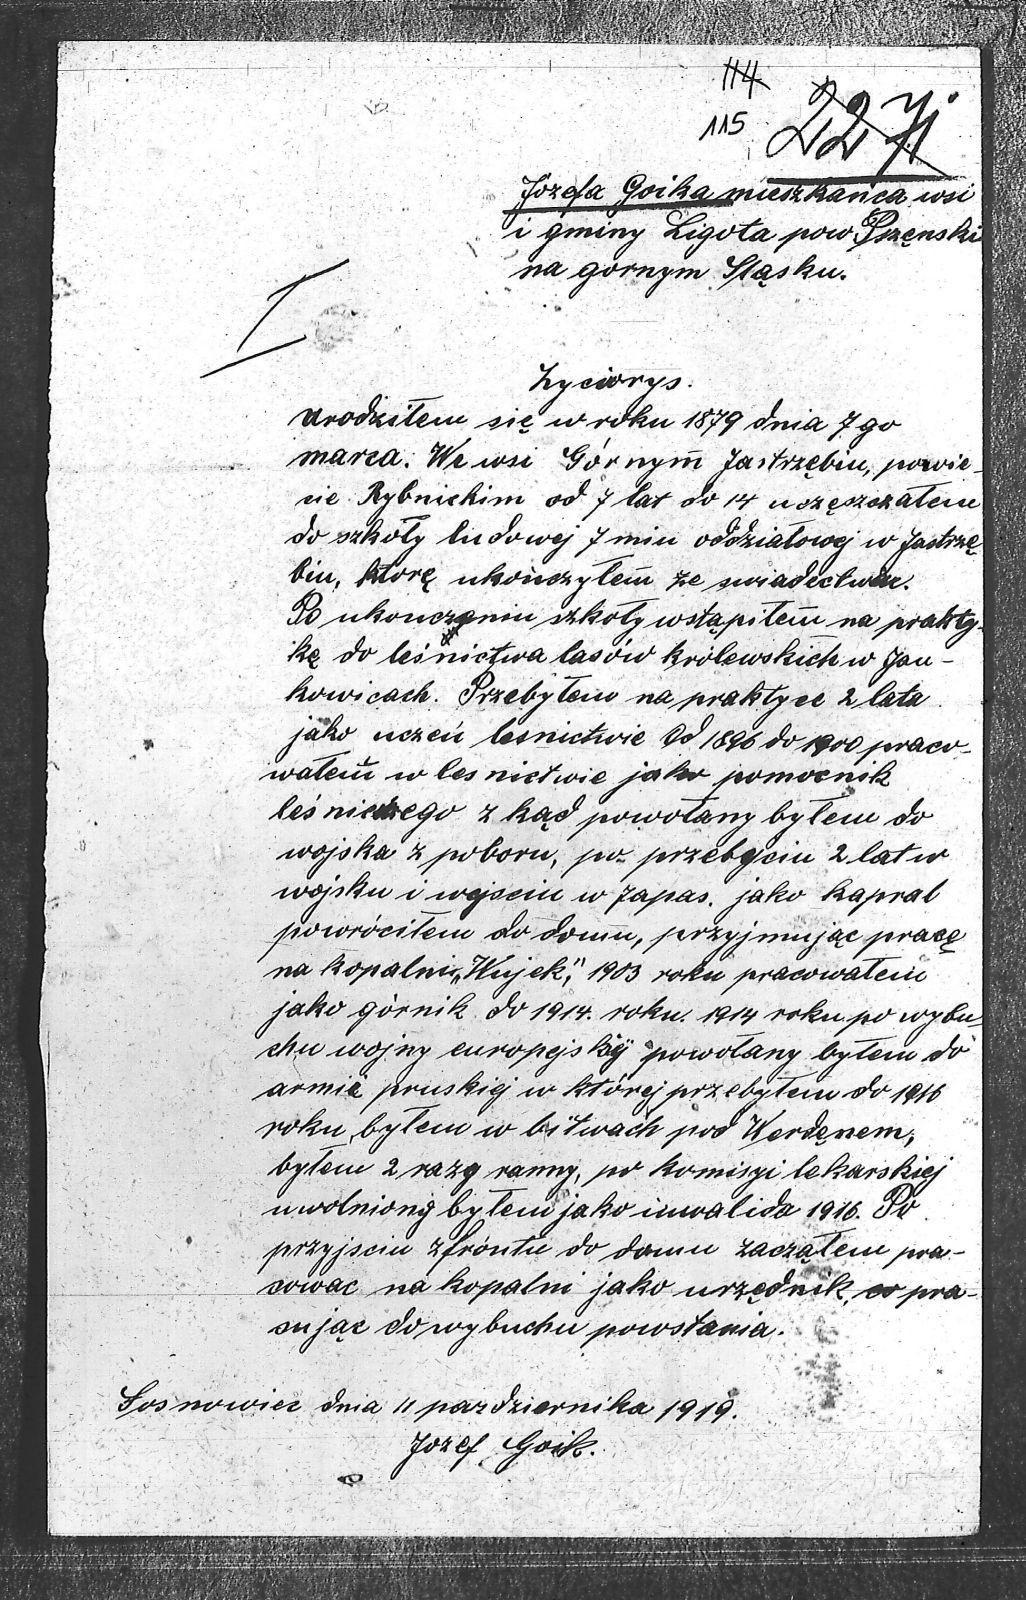 114
115
227
Józefa Goika mieszkańca wsi
i gminy Ligota pow Pszęnski
na gornym Sląsku.
I
Życiorys.
Urodziłem się w roku 1879 dnia 7 go
marca. We wsi Górnym Jastrzębiu, powie-
cie Rybnickim od 7 lat do 14 uczęszczałem
do szkoły ludowej 7 miu oddziałowej w Jastrzę
biu, ktorę ukończyłem ze swiadectwem.
Po ukonczeniu szkoły wstąpiłem na prakty-
kę do leśnictwa lasów królewskich w Jan-
kowicach. Przebyłem na praktyce 2 lata
jako uczeń lesnictwie Od 1896 do 1900 praco-
wałem w lesnictwie jako pomocnik
leśniczego z kąd powołany byłem do
wojska z poboru, po przebyciu 2 lat w
wojsku i wejsciu w zapas. jako kapral
powróciłem do domu, przyjmując pracę
na kopalni „Wujek", 1903 roku pracowałem
jako górnik do 1914. roku. 1914 roku po wybu-
chu wojny europejskiej powołany byłem do
armie pruskiej w której przebyłem do 1916
roku, byłem w bitwach pod Werdęnem,
byłem 2 razy ranny, po komisyi lekarskiej
uwolniony byłem jako inwalida 1916. Po
przyjsciu z fróntu do domu zacząłem pra-
cowac na kopalni jako urzędnik, co pra-
cując do wybuchu powstania.
Sosnowiec dnia 11 pazdziernika 1919.
Jozef Goik.